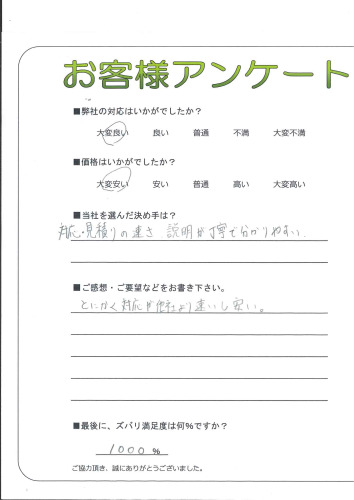 お客様アンケート
■弊社の対応はいかがでしたか？
大変良い 良い 普通 不満 大変不満
■価格はいかがでしたか？
大変安い 安い 普通 高い 大変高い
■当社を選んだ決め手は？
対応・見積りの速さ 説明が丁寧で分かりやすい.
■ご感想・ご要望などをお書き下さい。
とにかく対応が他社より速いし安い。
■最後に、ズバリ満足度は何%ですか？
1000 %
ご協力頂き、誠にありがとうございました。